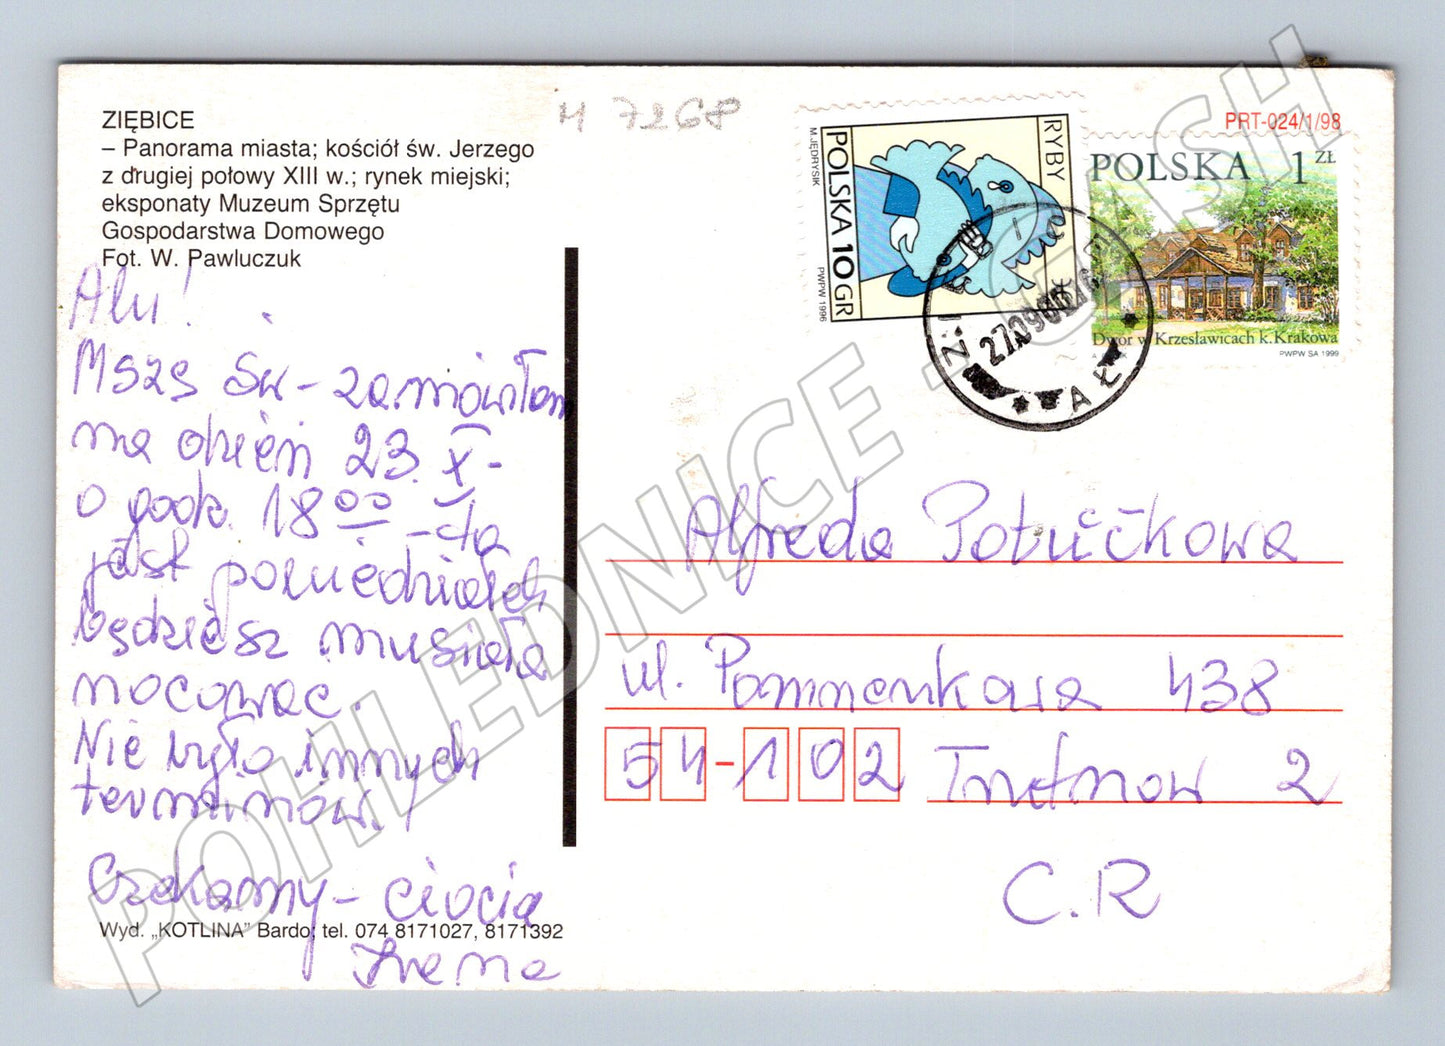 ZIĘBICE
– Panorama miasta; kościół św. Jerzego
z drugiej połowy XIII w.; rynek miejski;
eksponaty Muzeum Sprzętu
Gospodarstwa Domowego
Fot. W. Pawluczuk
Alu!
Mszę św – zamówiłam
na dzień 23. X-
o godz. 18 00 – to
jest poniedziałek
będziesz musiała
nocować.
Nie było innych
terminów.
Czekamy – ciocia
Irena
Wyd. „KOTLINA” Bardo; tel. 074 8171027, 8171392
M 7268
RYBY
POLSKA 10 GR
M. JĘDRYSIK
PWPW 1996
PRT-024/1/98
POLSKA 1 ZŁ
Dwór w Krzesławicach k. Krakowa
PWPW SA 1999
Alfreda Potučkowa
ul. Pommenkowa 438
54-102 Trutnow 2
C.R
POHLEDNICE - GASH